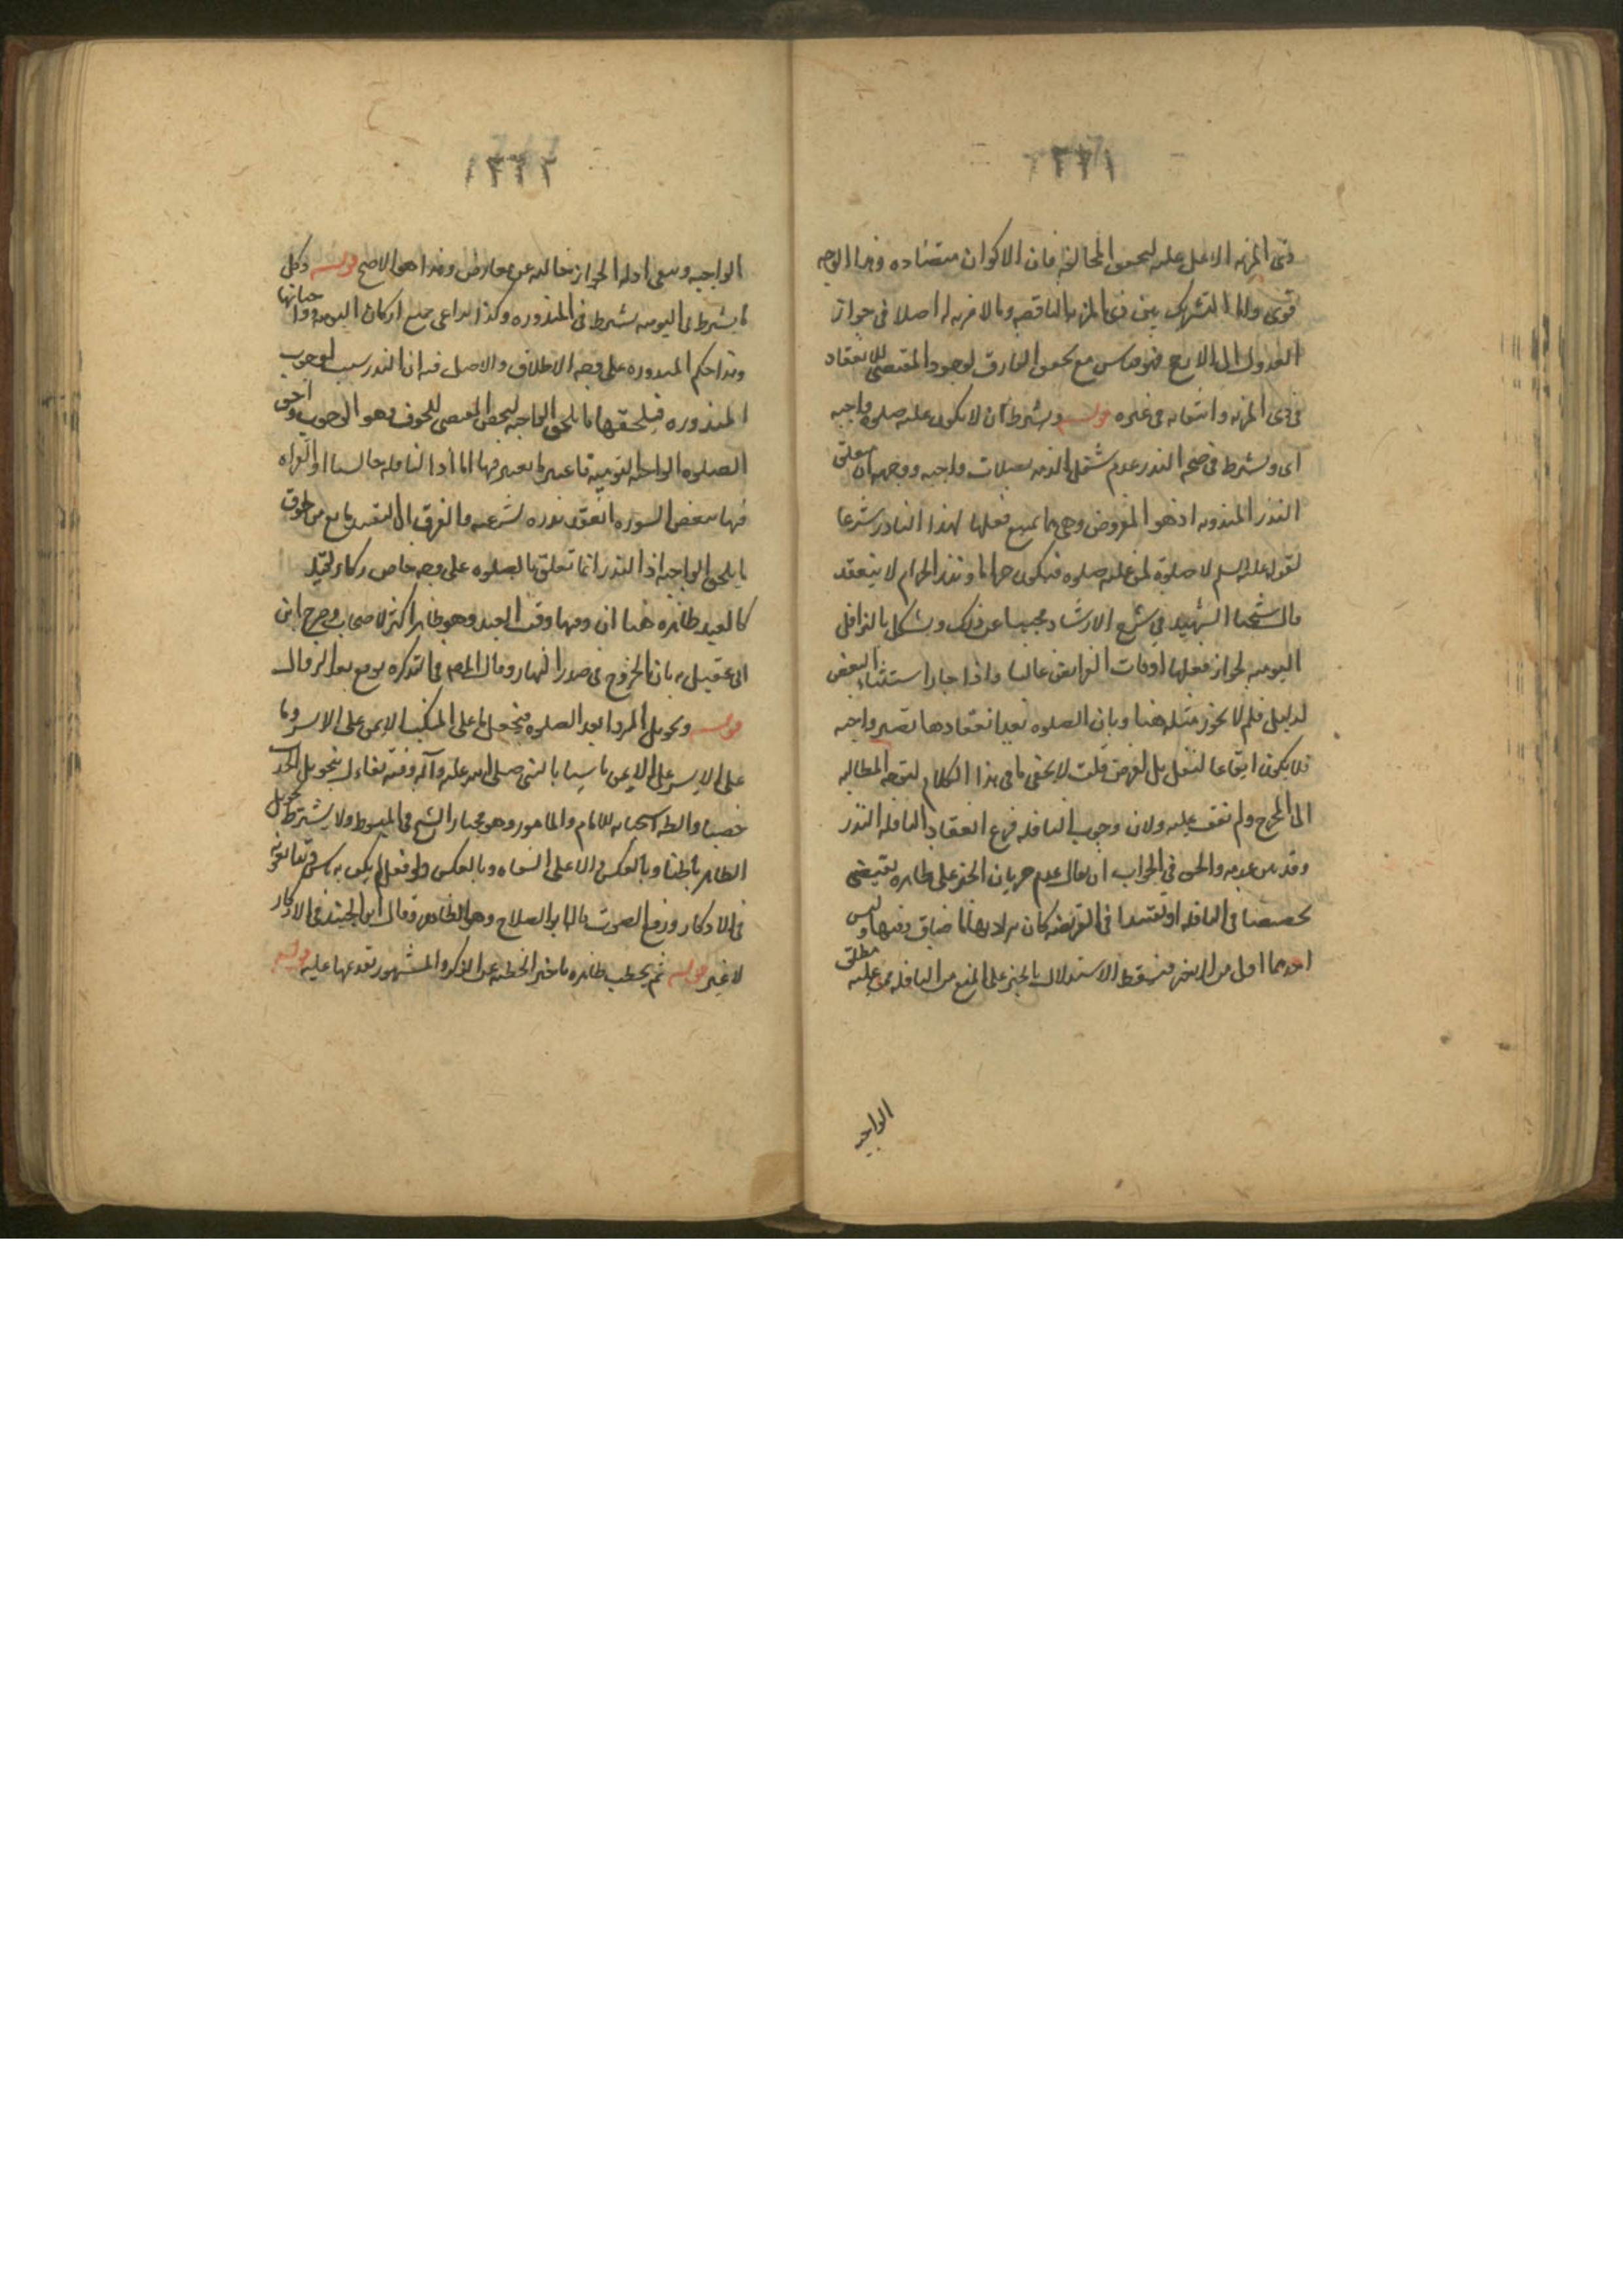 ذى المزيه الاعلى عليه لتحقق المخالفه فان الاكوان متضاده وهذا الوجه
قوى واما التشريك بين ذى المزيه الناقصه وما لا مزيه له اصلا فى جواز
العدول الى الابعد فهو قياس مع تحقق الفارق لوجود المقتضى للانعقاد
فى ذى المزيه وانتفائه فى غيره قوله ويشترط ان لا يكون عليه صلوة واجبه
اى ويشترط فى صحه النذر عدم شغل الذمه بصلات واجبه ووجهه ان متعلق
النذر المندوبه اذ هو المفروض وهى مما يمتنع فعلها لهذا الناذر شرعا
لقوله عليه السلم لا صلوة لمن عليه صلوه فيكون حراما ونذر الحرام لا ينعقد
قال شيخنا الشهيد فى شرح الارشاد مجيبا عن ذلك ويشكل بالنوافل
اليوميه لجواز فعلها اوقات الفرايض غالبا واذا جاز استثناء البعض
لدليل فلم لا يجوز مثله هنا وبان الصلوه بعد انعقادها تصير واجبه
فلا يكون ايقاعا لنفل بل لفرض قلت لا يخفى ما فى هذا الكلام لتوجه المطالبه
الى المخرج ولم نقف عليه ولان وجوب النافله فرع انعقاد النافله النذر
وقد بين عدمه والحق فى الجواب ان يقال عدم جريان الخبر على ظاهره يقتضى
تخصيصا فى النافله او تقييدا فى الفريضه كان يراد بها ما ضاق وقتها وليس
احدهما اولى من الاخر فيسقط الاستدلال بالخبر على المنع من النافله لمن عليه مطلق
الواجبه
الواجبه ويبقى ادله الجواز خاليه عن معارض وهذا هو الاصح قوله وكل
ما يشترط فى اليوميه يشترط فى المنذوره وكذا يراعى جميع اركان اليوميه وواجباتها
هذا حكم المنذوره على وجه الاطلاق والاصل فيه ان النذر سبب لوجوب
المنذوره فيلحقها ما يلحق الواجبه لتحقق المقتضى للحوق وهو الوجوب واجتزى
الصلوه الواجبه اليوميه فاعتبر ما يعتبر فيها اما اذا النافله جالسا او القراه
فيها ببعض السوره انعقد نذره لشرعيته والفرق ان التقييد مانع من لحوق
ما يلحق الواجبه اذ النذر انما تعلق بالصلوه على وجه خاص
كالعيد ظاهره هنا ان وقتها وقت العيد وهو ظاهر اكثر الاصحاب وصرح ابن
ابى عقيل ره بان الخروج فى صدر النهار وقال المص فى التذكره يوقع بعد الزوال
قوله وتحويل الردا بعد الصلوه فيجعل ما على المنكب الايمن على الايسر وما
على الايسر على الايمن تاسيا بالنبى صلى الله عليه وآله وفيه تفاءل بتحويل الجدب
خصبا والظ استحبابه للامام والماموم وهو مختار الشيخ فى المبسوط ولا يشترط تحويل
الظاهر باطنا وبالعكس والاعلى اسفله وبالعكس ولو فعل لم يكن به باس وتتابعونه
فى الاذكار ورفع الصوت قاله ابو الصلاح وهو الظاهر وقال ابن الجنيد فى الاذكار
لا غير قوله ثم يخطب ظاهره تاخير الخطبه عن الذكر والمشهور تقديمها عليه قوله